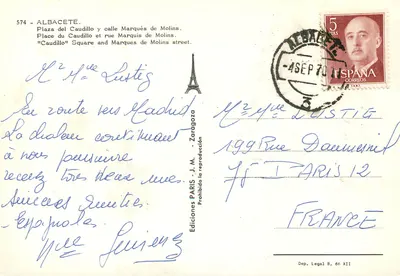 574 - ALBACETE.
Plaza del Caudillo y calle Marqués de Molina.
Place du Caudillo et rue Marquis de Molina.
"Caudillo" Square and Marques de Molina street.
Mr Mme Lustig
En route vers Madrid.
La chaleur continuant
à nous poursuivre
recevez tous deux nos
Sincères Amitiés
Espagnoles.
Mme
Ediciones PARIS - J. M. - Zaragoza
Prohibida la reproducción
ALBACETE
-4 SEP 70
3
5
PTAS
ESPAÑA
CORREOS
Mr Mme LUSTIG
199 Rue Daumesnil
75 PARIS 12
FRANCE
Dep. Legal B.